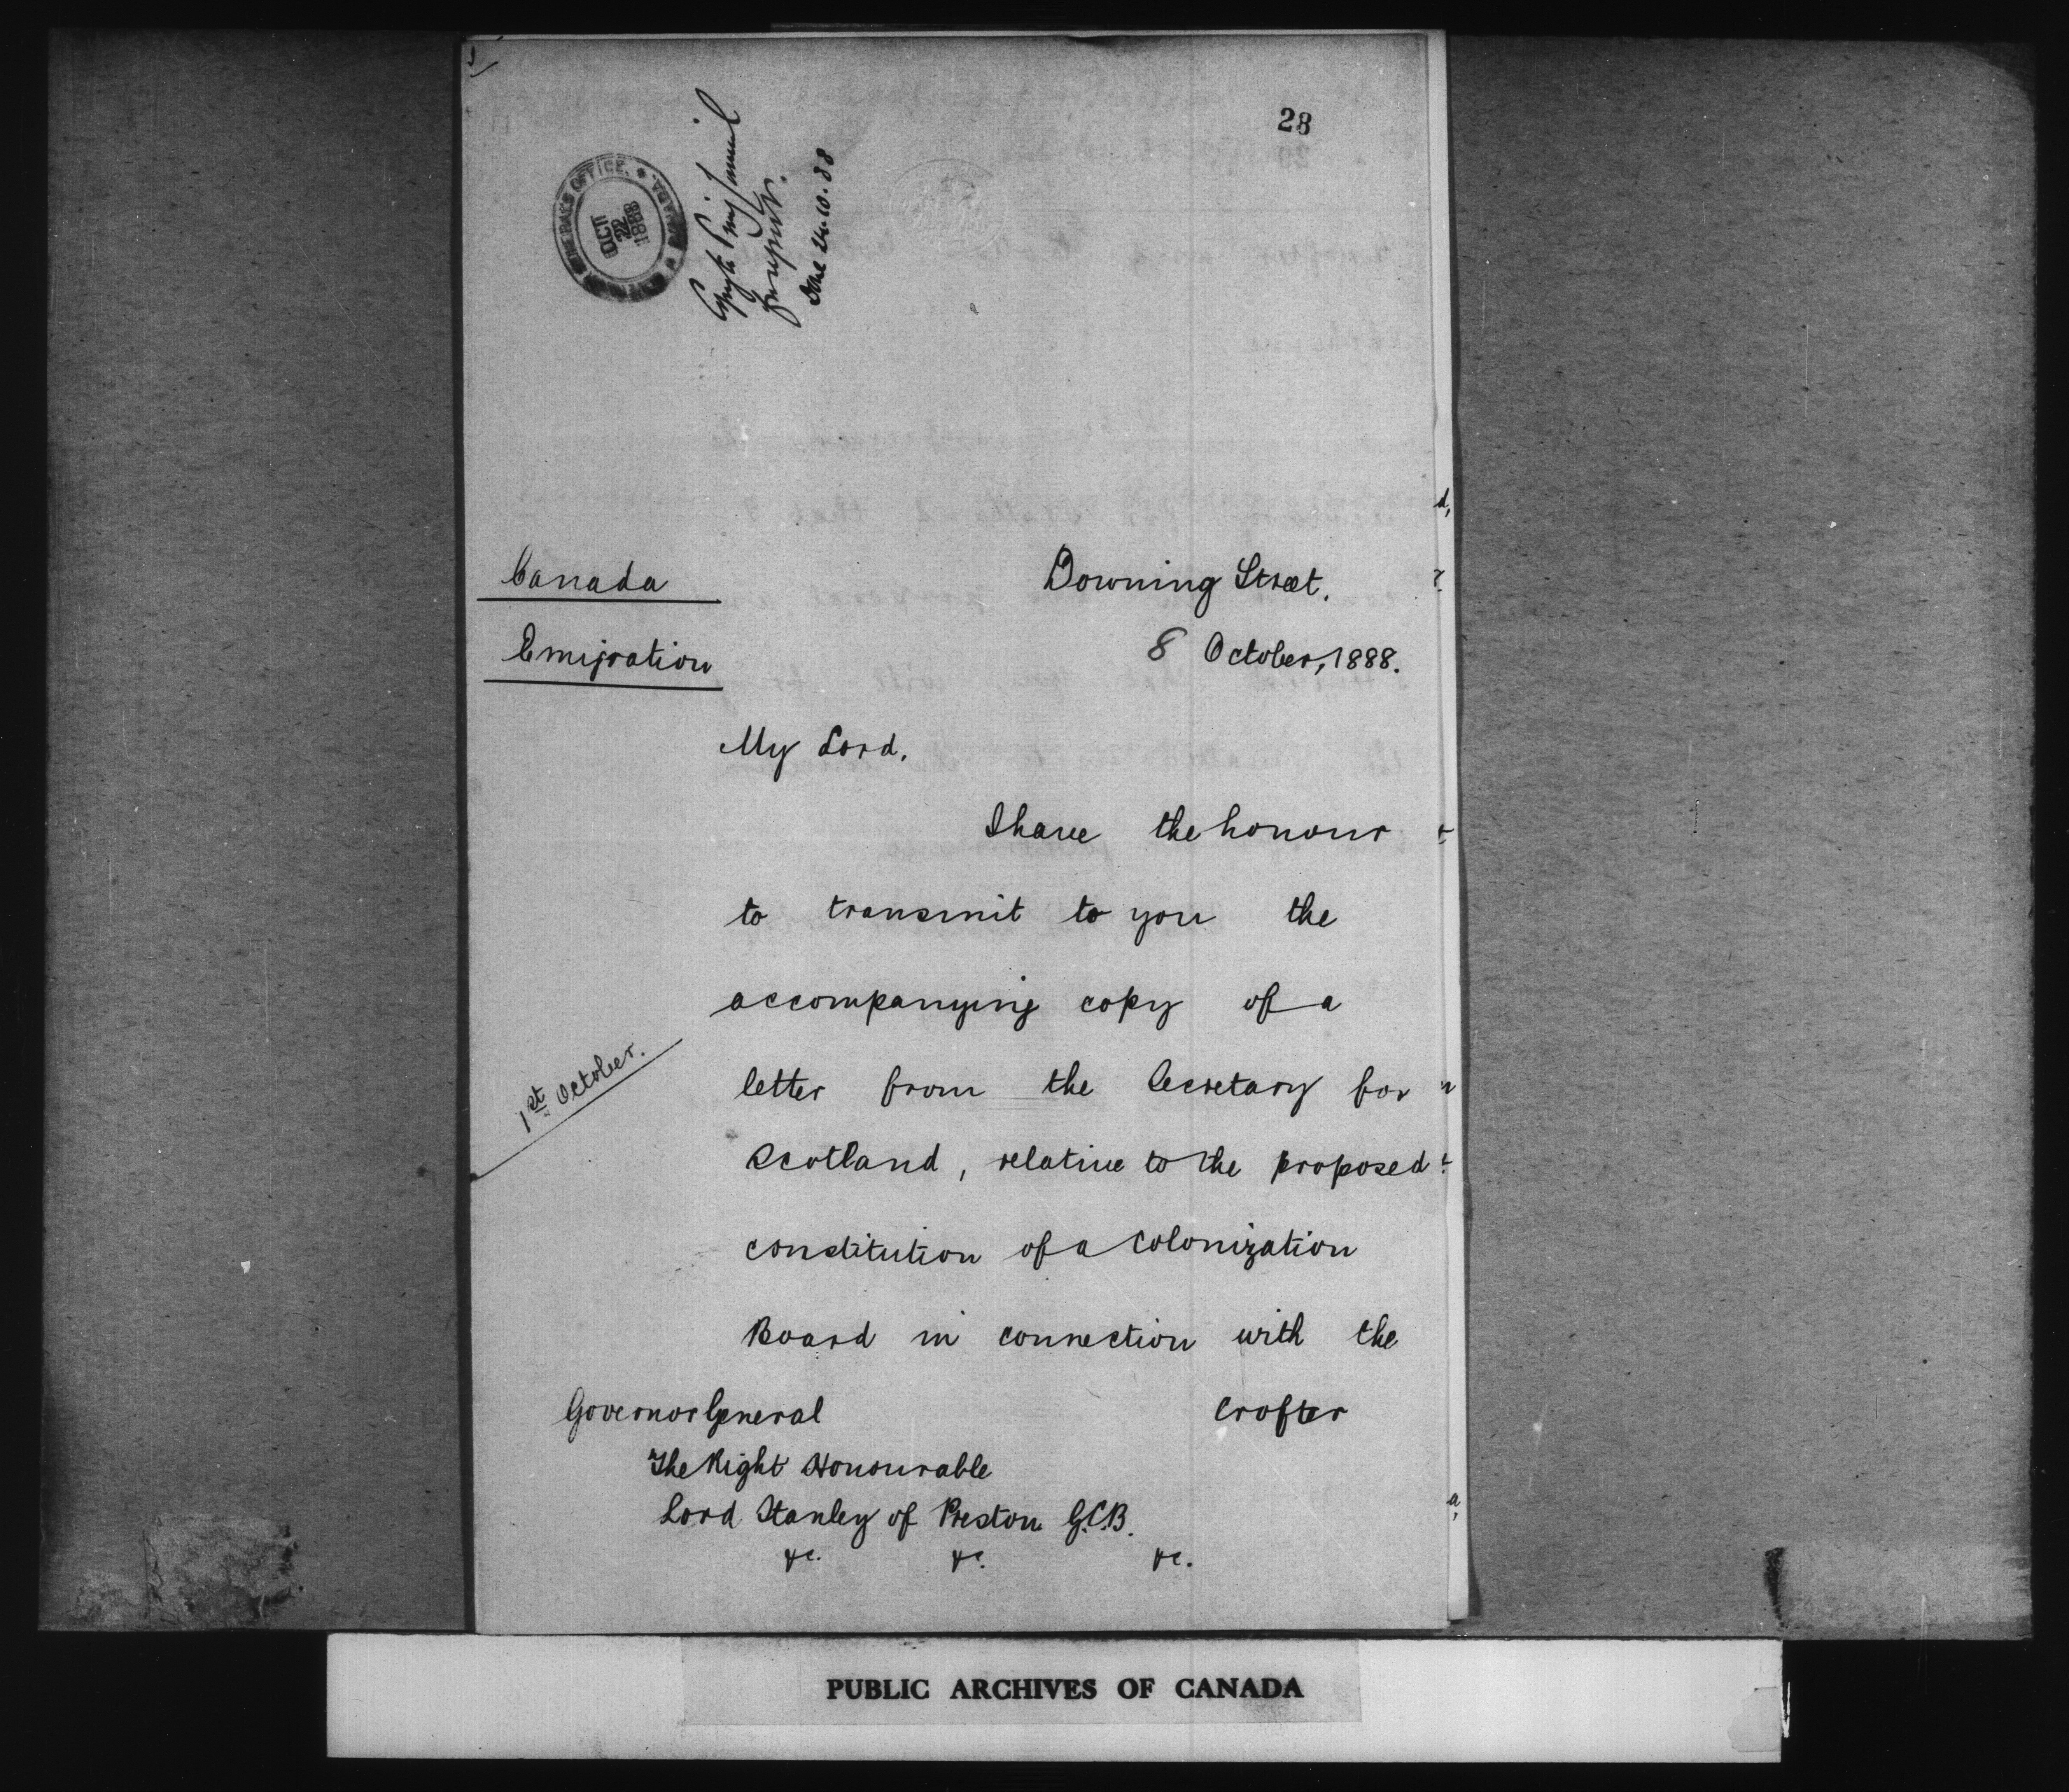 28
GENERAL'S OFFICE. * CANADA *
OCT
22
1888
Copy to Privy Council
for report.
done 24.10.88
Canada
Downing Street.
Emigration
8 October, 1888.
My Lord.
I have the honour
to transmit to you the
accompanying copy of a
1st October.
letter from the Secretary for
Scotland, relative to the proposed
constitution of a Colonization
Board in connection with the
Crofter
Governor General
The Right Honourable
Lord Stanley of Preston G.C.B.
&c. &c. &c.
PUBLIC ARCHIVES OF CANADA